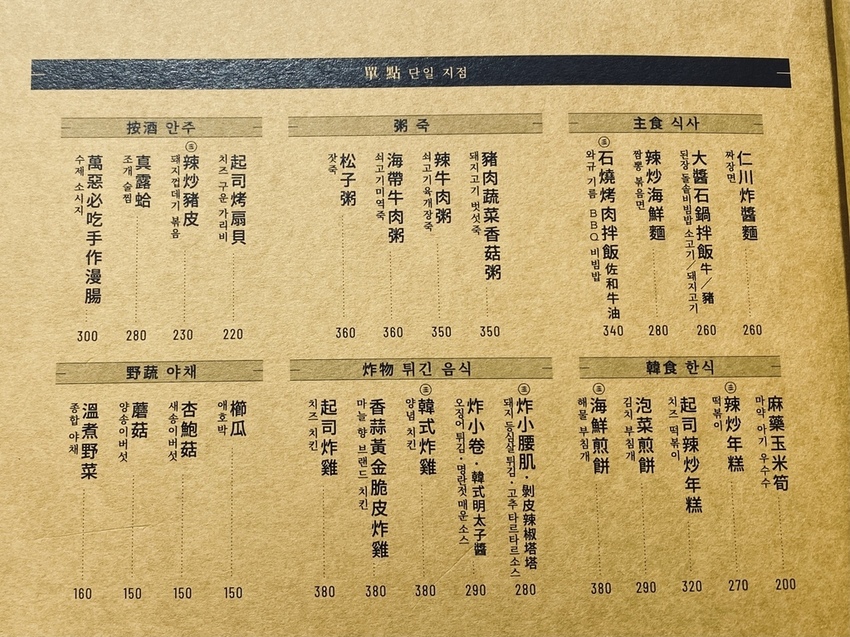 單點 단일 지점
主食 식사
仁川炸醬麵
짜장면
260
大醬石鍋拌飯 牛／豬
된장 돌솥비빔밥 소고기／돼지고기
260
辣炒海鮮麵
짬뽕 볶음면
280
石燒烤肉拌飯 佐和牛油
와규 기름 BBQ 비빔밥
340
粥 죽
豬肉蔬菜香菇粥
돼지고기 버섯죽
350
辣牛肉粥
쇠고기육개장죽
350
海帶牛肉粥
쇠고기미역죽
360
松子粥
잣죽
360
按酒 안주
起司烤扇貝
치즈 구운 가리비
220
辣炒豬皮
돼지껍데기 볶음
230
真露蛤
조개 술찜
280
萬惡必吃手作漫腸
수제 소시지
300
韓食 한식
麻藥玉米筍
마약 아기 우수수
200
辣炒年糕
떡볶이
270
起司辣炒年糕
치즈 떡볶이
320
泡菜煎餅
김치 부침개
290
海鮮煎餅
해물 부침개
380
炸物 튀긴 음식
炸小腰肌・剝皮辣椒塔塔
돼지 등심살 튀김・고추 타르타르소스
280
炸小卷・韓式明太子醬
오징어 튀김・명란젓 매운 소스
290
韓式炸雞
양념 치킨
380
香蒜黃金脆皮炸雞
마늘 향 브랜드 치킨
380
起司炸雞
치즈 치킨
380
野蔬 야채
櫛瓜
애호박
150
杏鮑菇
새송이버섯
150
蘑菇
양송이버섯
150
溫煮野菜
종합 야채
160